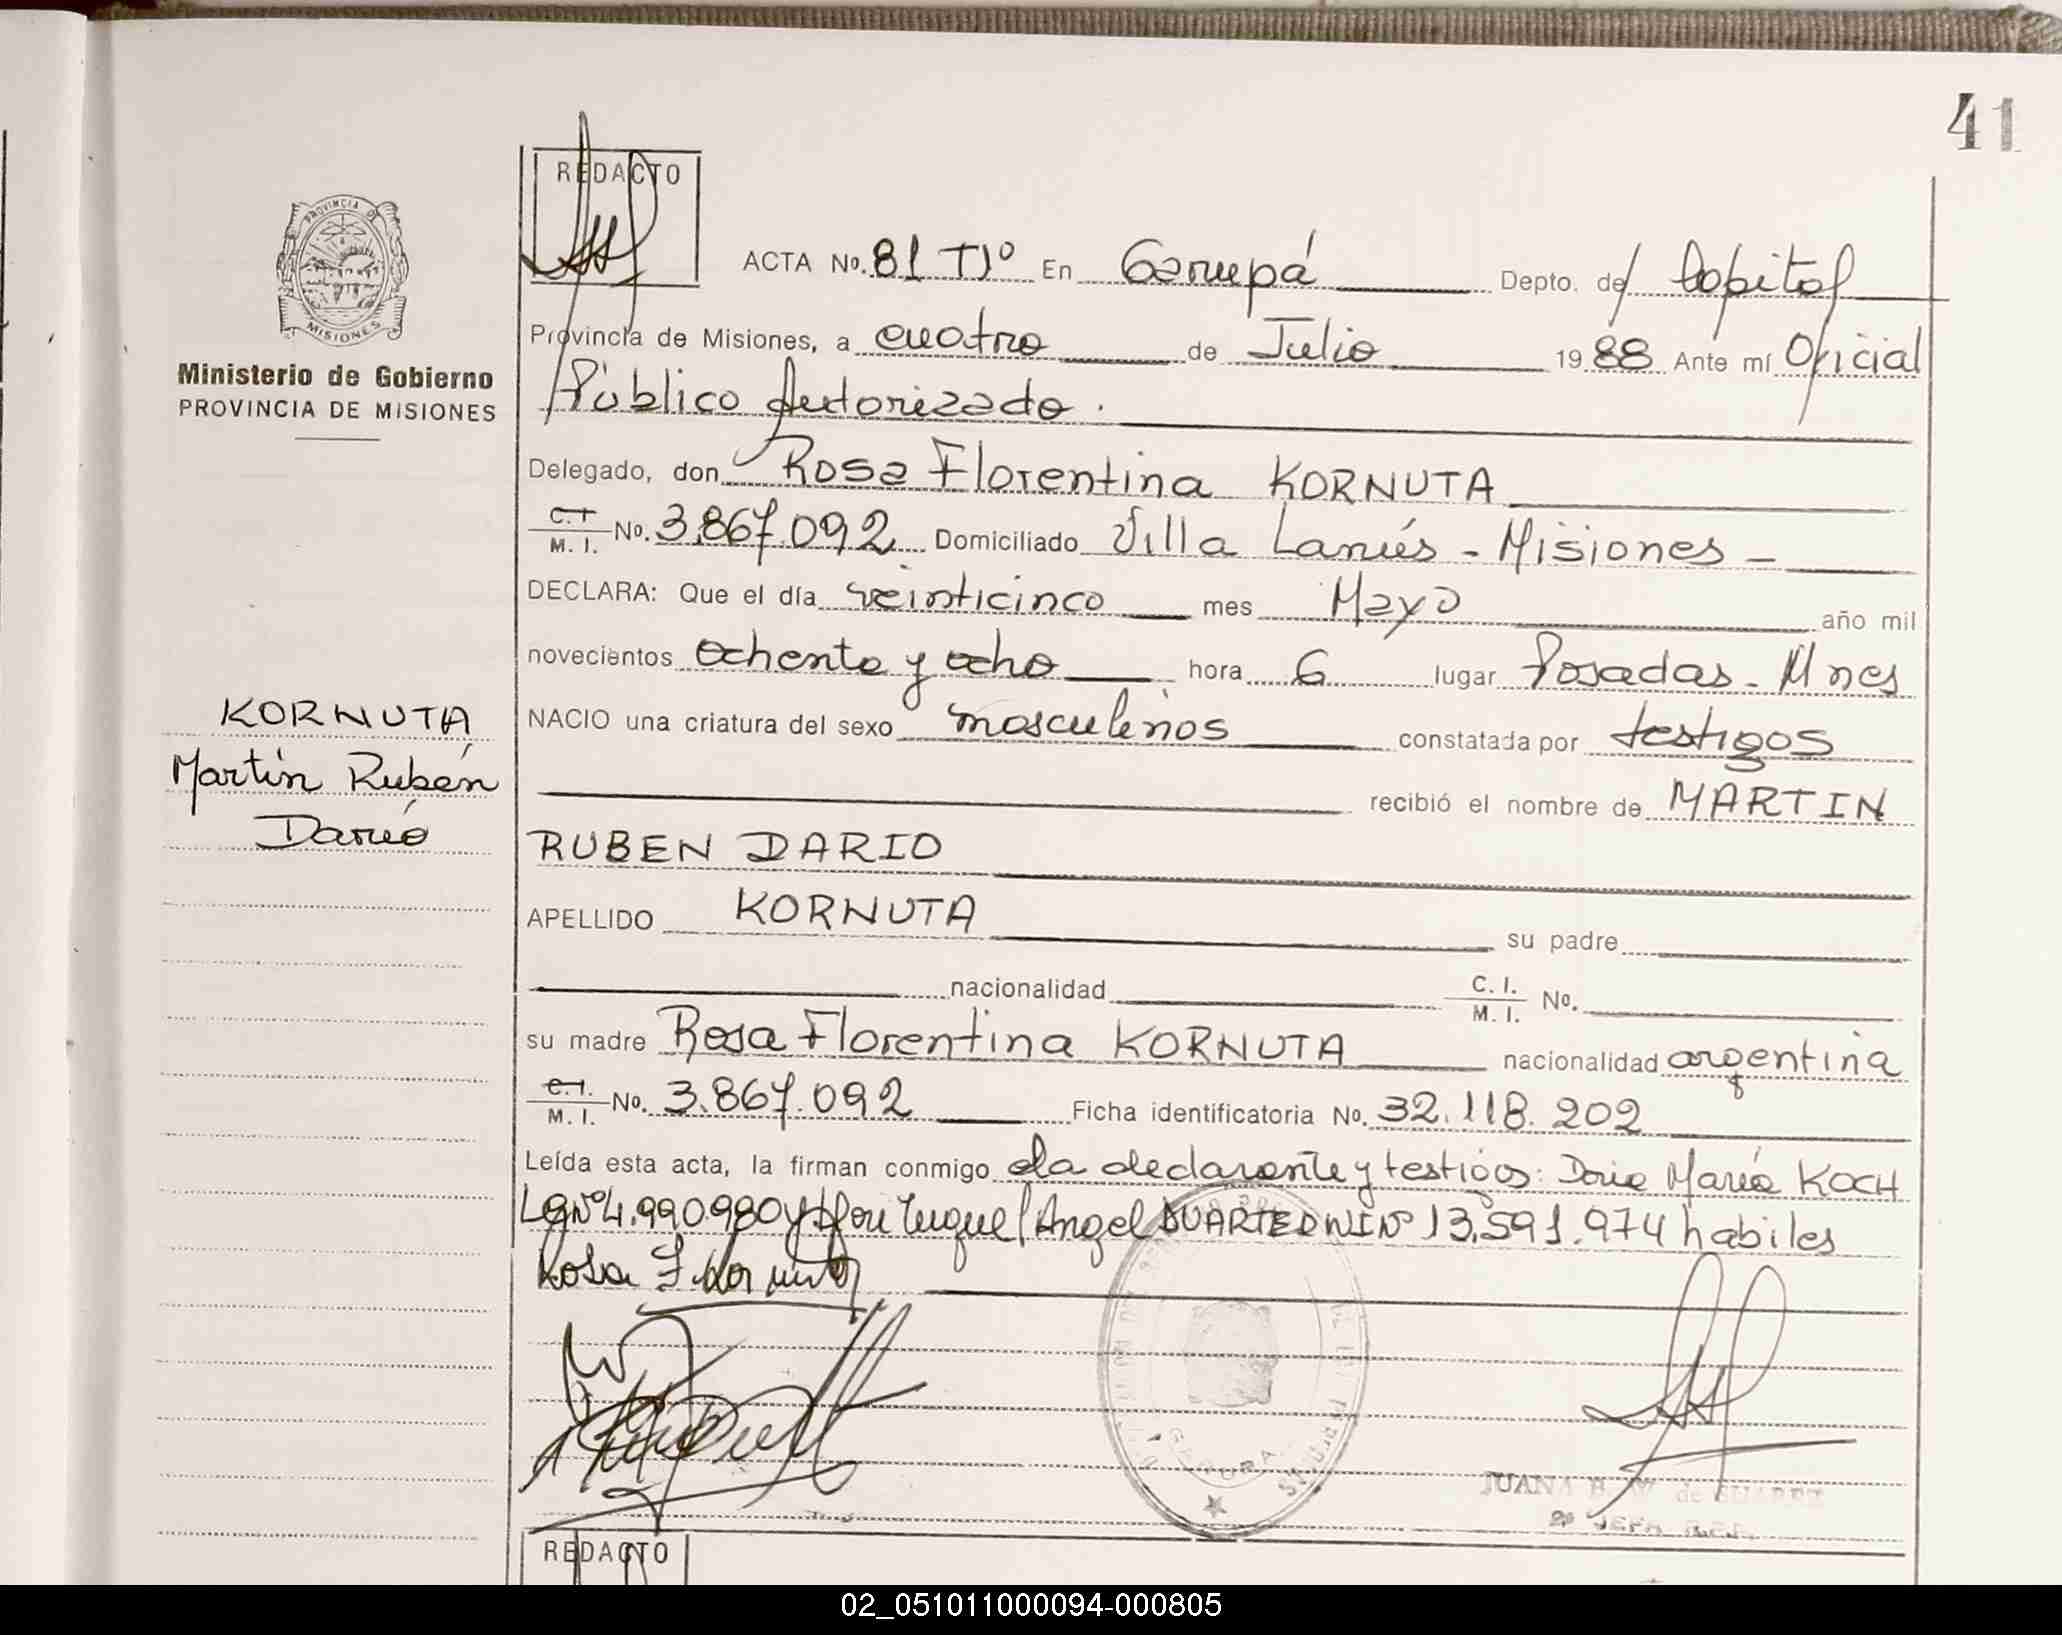 41
REDACTO
PROVINCIA DE
MISIONES
Ministerio de Gobierno
PROVINCIA DE MISIONES
ACTA No. 81 TIº En Garupá Depto. de Capital
Provincia de Misiones, a cuatro de Julio 1988 Ante mí Oficial
Público Autorizado.
Delegado, don Rosa Florentina KORNUTA
C.I. M. I. No. 3.867.092 Domiciliado Villa Lanús - Misiones -
DECLARA: Que el día veinticinco mes Mayo año mil
novecientos ochenta y ocho hora 6 lugar Posadas - Mnes
NACIO una criatura del sexo masculinos constatada por testigos
recibió el nombre de MARTIN
RUBEN DARIO
APELLIDO KORNUTA su padre
nacionalidad C. I. M. I. No.
su madre Rosa Florentina KORNUTA nacionalidad argentina
C.I. M. I. No. 3.867.092 Ficha identificatoria No. 32.118.202
Leída esta acta, la firman conmigo la declarante y testigos: María KOCH
4.990.980 y Angel DUARTE DNI Nº 13.591.974 habiles
Rosa F. Kornuta
KORNUTA
Martín Rubén
Darío
GARUPA
JUANA B. W. de SUAREZ
2º JEFA
REDACTO
02_051011000094-000805